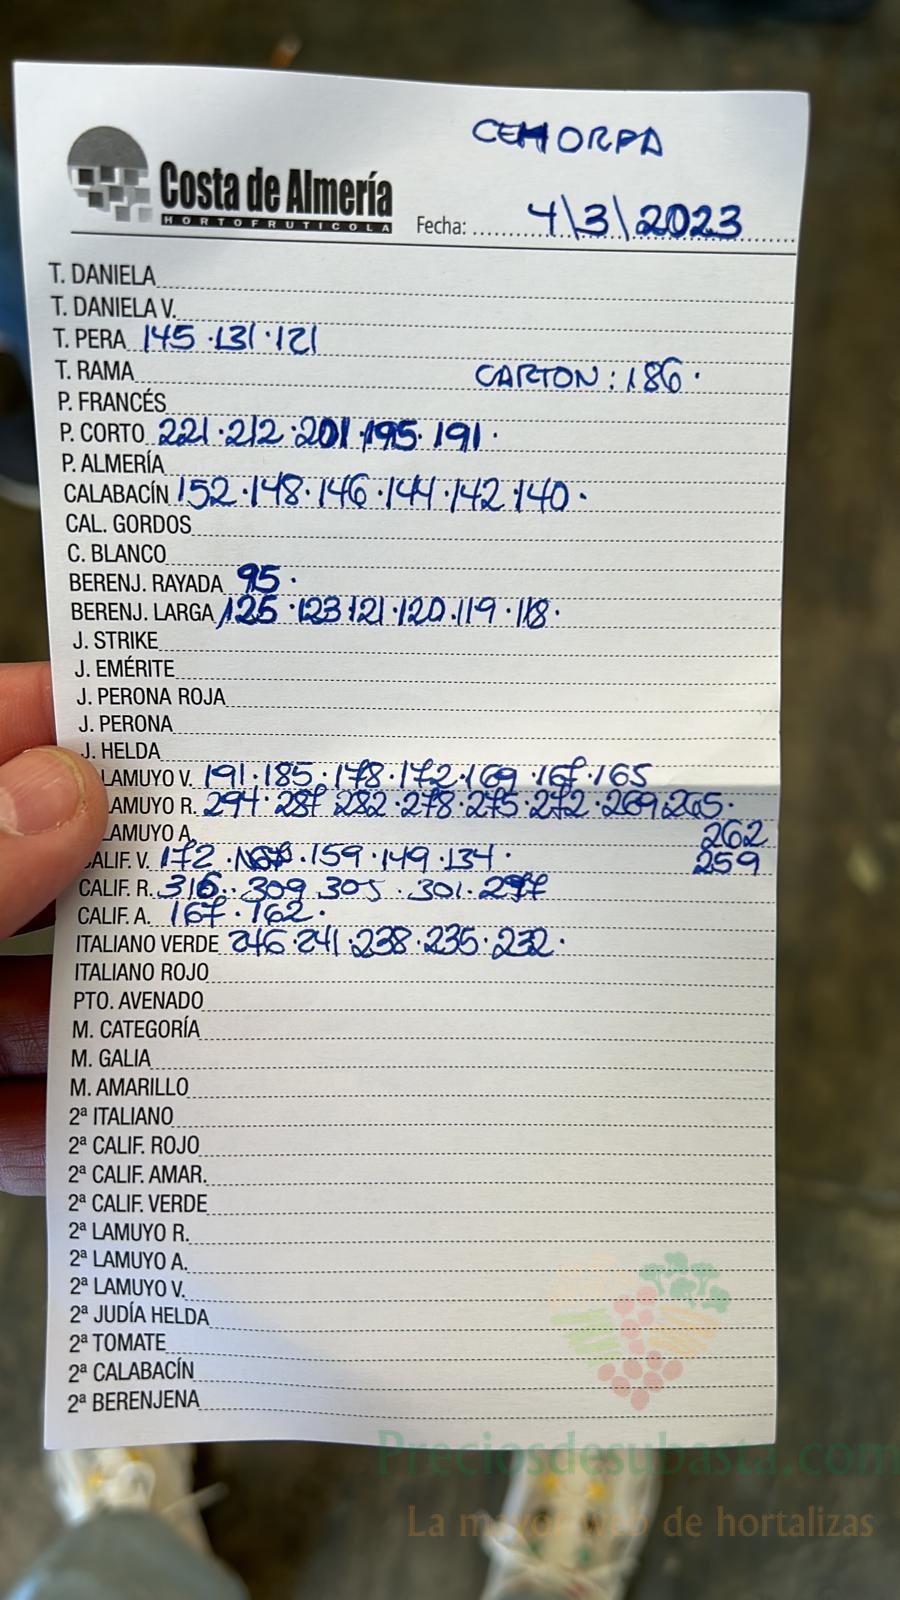 CEMORPA
Costa de Almería
HORTOFRUTICOLA
Fecha: 4\3\2023
T. DANIELA
T. DANIELA V.
T. PERA 145 · 131 · 121
T. RAMA CARTON : 186 ·
P. FRANCÉS
P. CORTO 221 · 212 · 201 · 195 · 191 ·
P. ALMERÍA
CALABACÍN 152 · 148 · 146 · 144 · 142 · 140 ·
CAL. GORDOS
C. BLANCO
BERENJ. RAYADA 95 ·
BERENJ. LARGA 125 · 123 121 · 120 · 119 · 118 ·
J. STRIKE
J. EMÉRITE
J. PERONA ROJA
J. PERONA
J. HELDA
LAMUYO V. 191 · 185 · 178 · 172 · 169 · 167 · 165
LAMUYO R. 294 · 287 282 · 278 · 275 · 272 · 269 · 265 ·
LAMUYO A. 262
CALIF. V. 172 · 167 · 159 · 149 · 134 · 259
CALIF. R. 316 · 309 305 · 301 · 297
CALIF. A. 167 · 162 ·
ITALIANO VERDE 246 241 · 238 · 235 · 232 ·
ITALIANO ROJO
PTO. AVENADO
M. CATEGORÍA
M. GALIA
M. AMARILLO
2ª ITALIANO
2ª CALIF. ROJO
2ª CALIF. AMAR.
2ª CALIF. VERDE
2ª LAMUYO R.
2ª LAMUYO A.
2ª LAMUYO V.
2ª JUDÍA HELDA
2ª TOMATE
2ª CALABACÍN
2ª BERENJENA
Preciosdesubasta.com
La mayor web de hortalizas